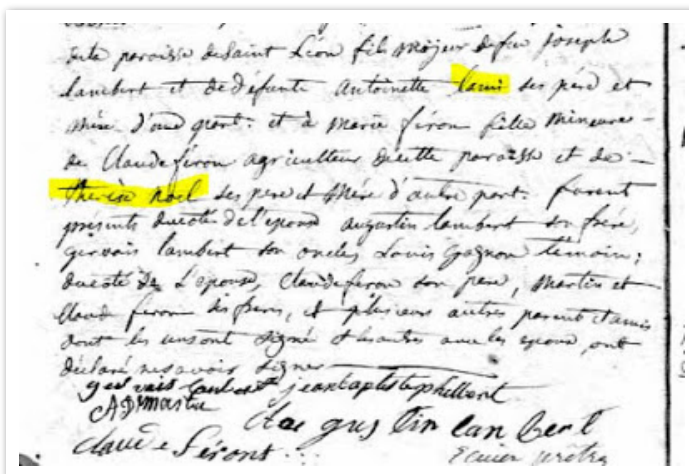 de la paroisse de saint Léon fils majeur de feu joseph
lambert et de défunte Antoinette lami ses père et
mère d'une part: et à Marie féron fille mineure
de Claude féron agriculteur de cette paroisse et de
thérèse noël ses père et mère d'autre part. furent
présents du coté de l'epoux augustin lambert son frère,
gervais lambert son oncles, Louis gagnon témoin;
du coté de L'epouse, Claude feron son pere, Martin et
Claud feron ses freres, et plusieurs autres parent et amis
dont les uns ont signé et les autres avec les epoux, ont
déclaré ne savoir signer
gervais lambert jean baptiste philbert
augustin lanbert
claude féront
prêtre